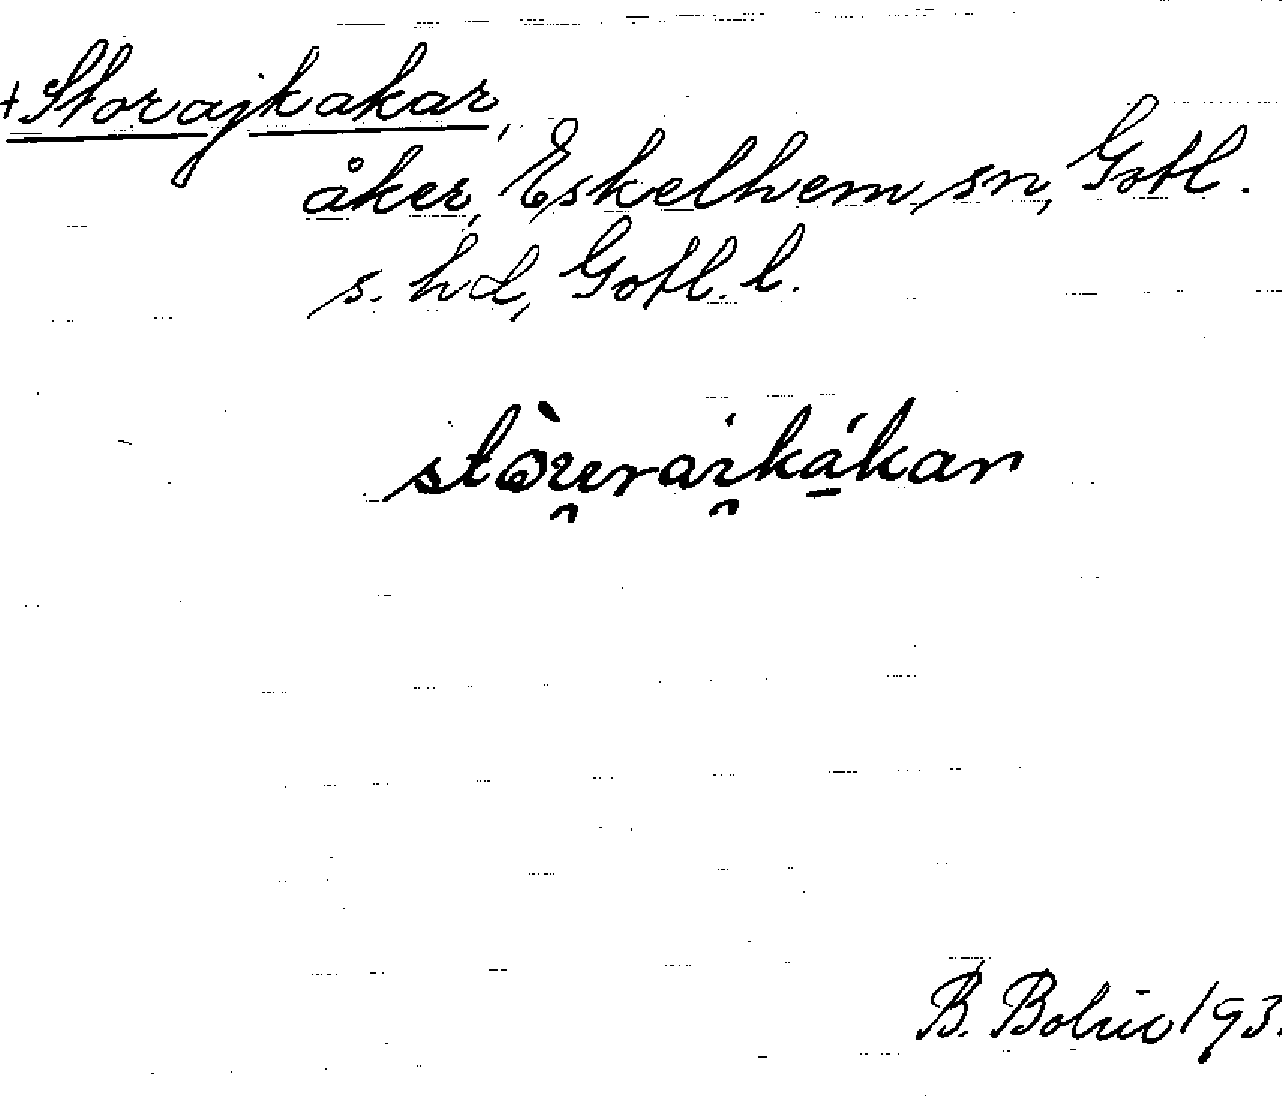 +Storajkakar,
åker, Eskelhem sn, Gotl.
s. hd, Gotl. l.
stòu̯rai̯kákar
B. Bolin 193